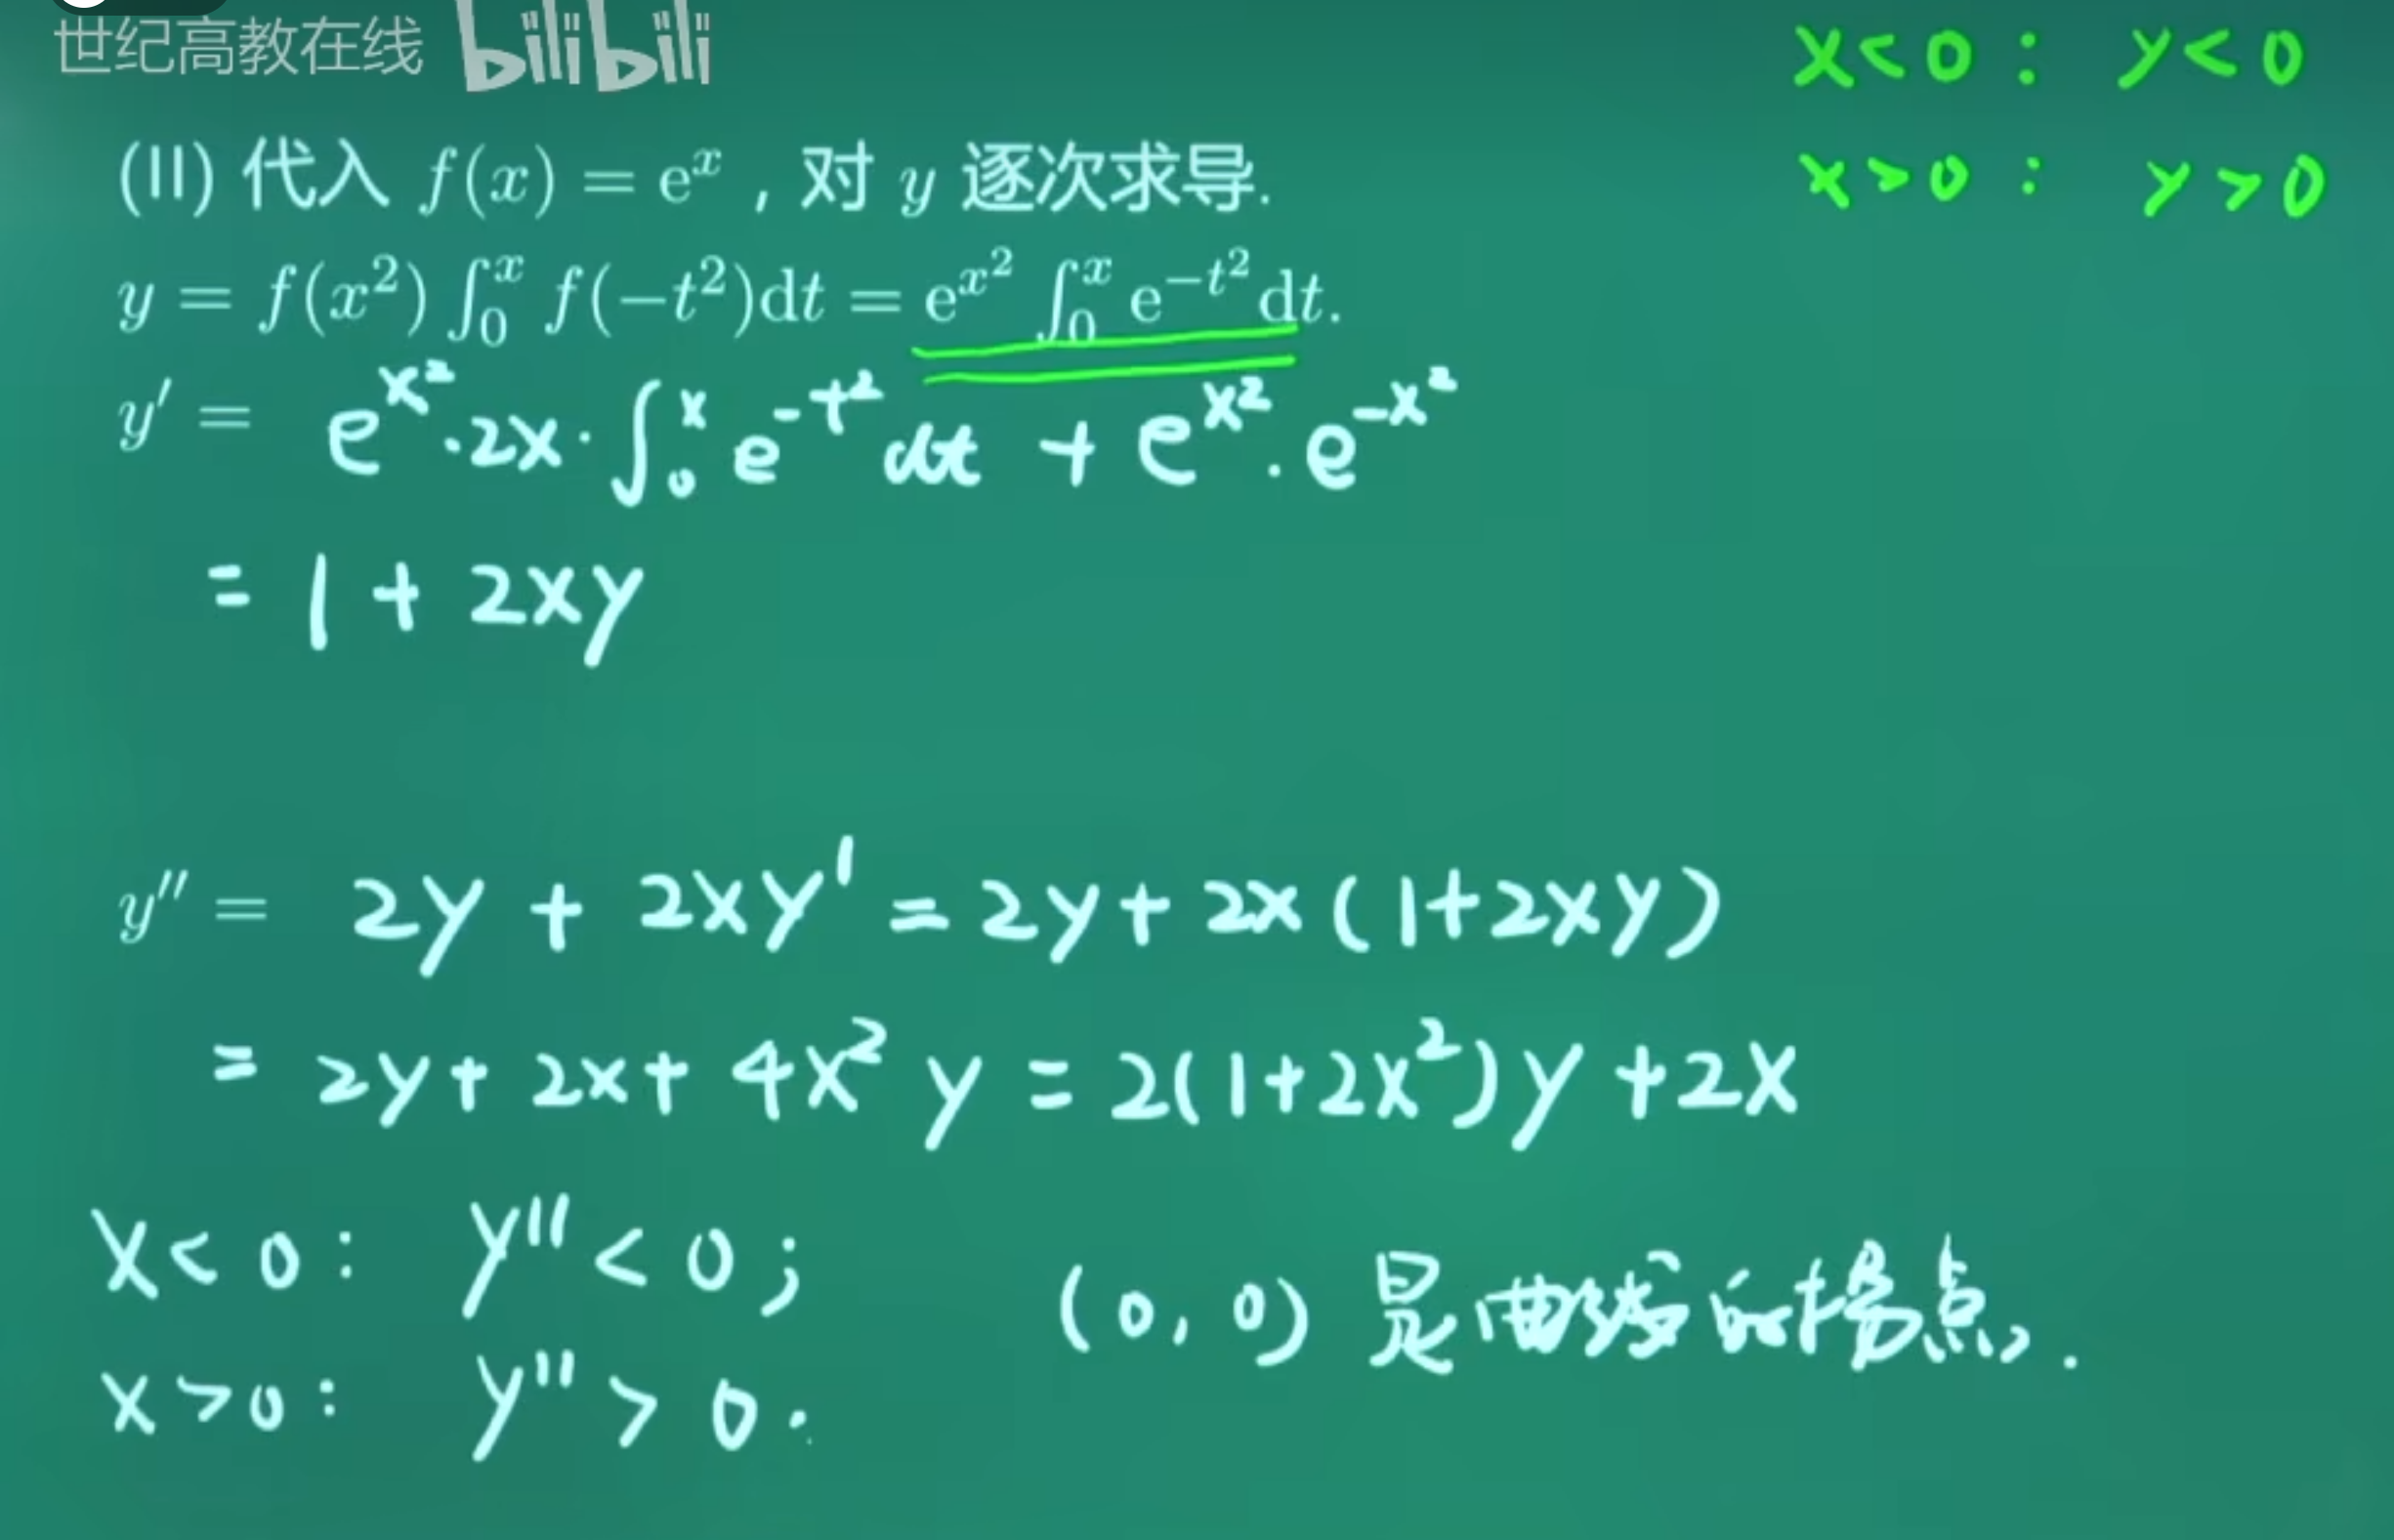 世纪高教在线 bilibili
x<0 : y<0
x>0 : y>0
(II) 代入 f(x) = e^x , 对 y 逐次求导.
y = f(x²) ∫₀ˣ f(−t²)dt = e^{x²} ∫₀ˣ e^{−t²}dt.
y′ = e^{x²}·2x·∫₀ˣ e^{-t²} dt + e^{x²}·e^{-x²}
= 1 + 2xy
y″ = 2y + 2xy′ = 2y + 2x(1+2xy)
= 2y + 2x + 4x²y = 2(1+2x²)y + 2x
x<0 : y″<0;
(0,0) 是曲线的拐点.
x>0 : y″>0.